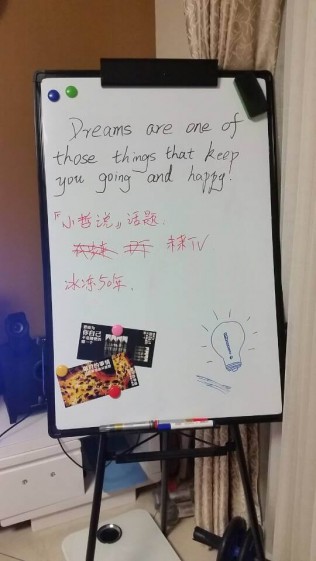 Dreams are one of
those things that keep
you going and happy!
『小哲说』话题:
辣TV
冰冻50年.
你自己